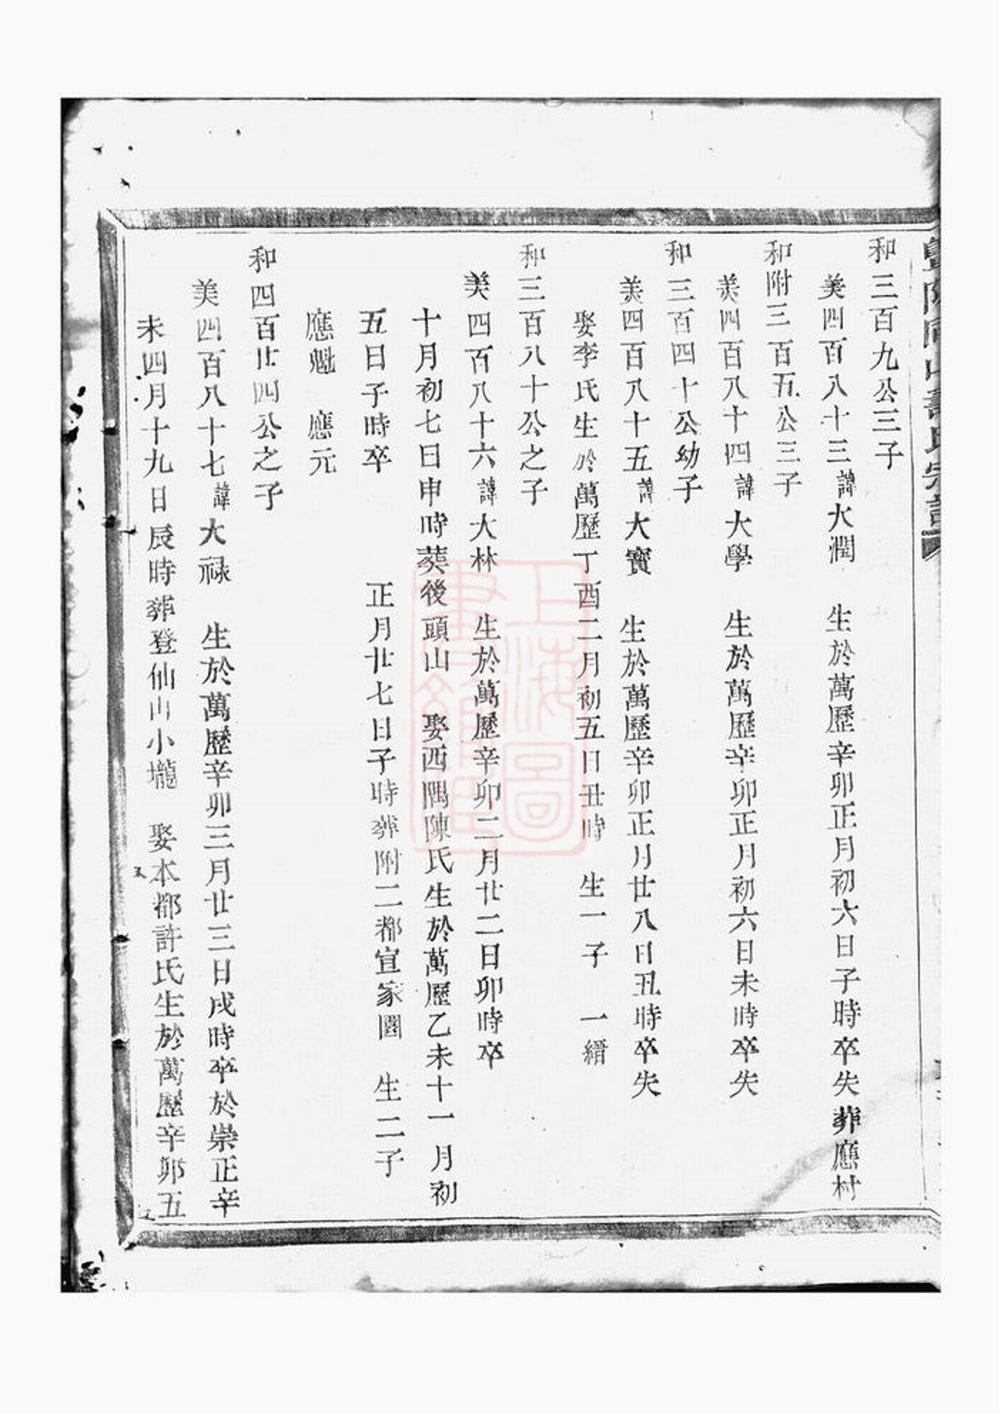 和三百九公三子
美四百八十三諱大潤　生於萬歷辛卯正月初六日子時卒失葬應村
和附三百五公三子
美四百八十四諱大學　生於萬歷辛卯正月初六日未時卒失
和三百四十公幼子
美四百八十五諱大寳　生於萬歷辛卯正月廿八日丑時卒失
娶李氏生於萬歷丁酉二月初五日丑時　生一子　一縉
和三百八十公之子
美四百八十六諱大林　生於萬歷辛卯二月廿二日卯時卒
十月初七日申時葬後頭山　娶西隅陳氏生於萬歷乙未十一月初
五日子時卒　　　正月廿七日子時葬附二都宣家園　生二子
應魁　應元
和四百廿四公之子
美四百八十七諱大祿　生於萬歷辛卯三月廿三日戌時卒於崇正辛
未四月十九日辰時葬登仙山小壠　娶本都許氏生於萬歷辛卯五
上海圖書館藏